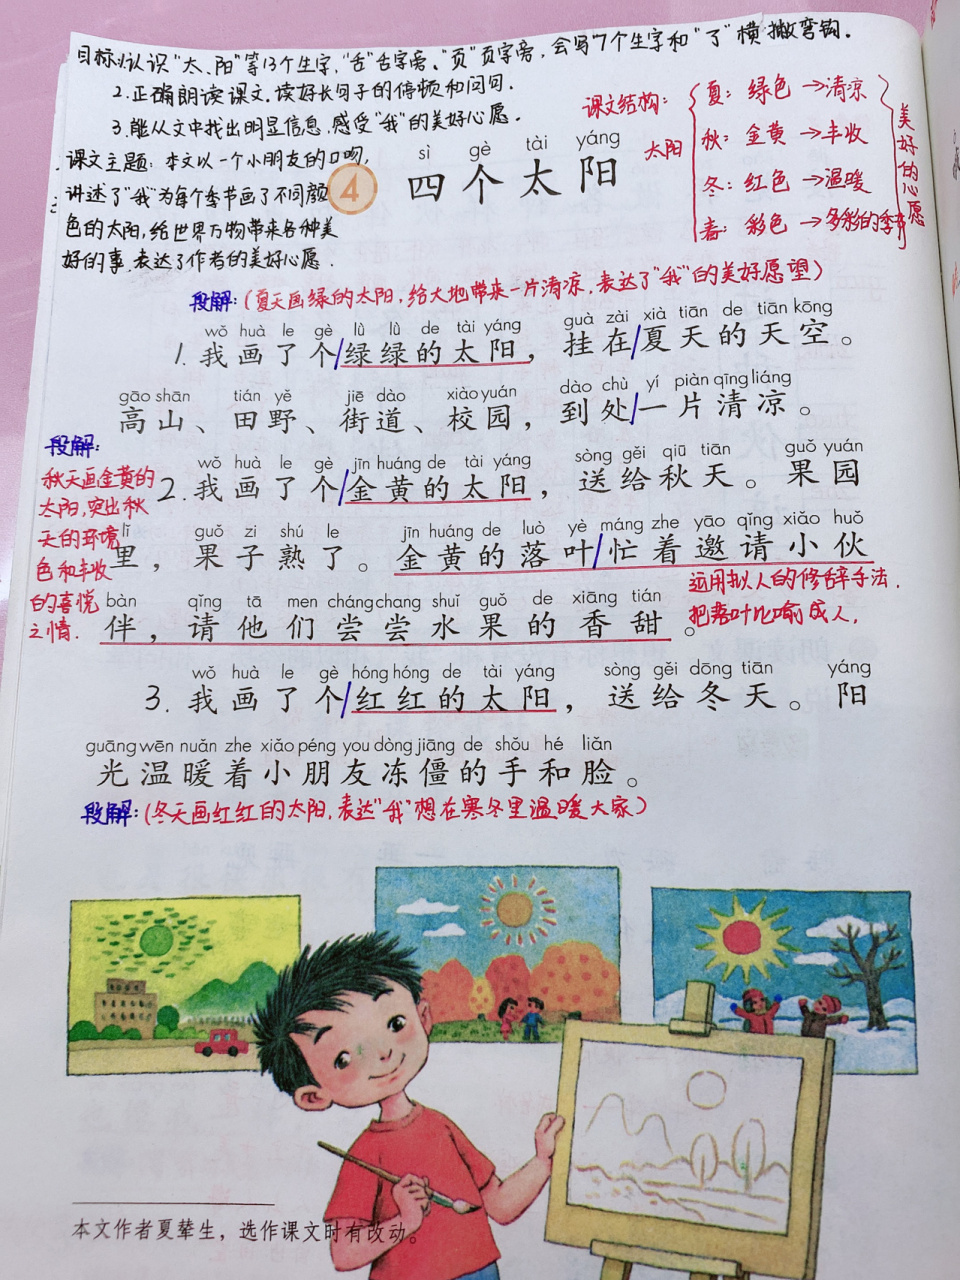 目标:1.认识"太、阳"等13个生字,"舌"舌字旁、"页"页字旁,会写7个生字和"了"横撇弯钩.
2.正确朗读课文.读好长句子的停顿和问句.
3.能从文中找出明显信息.感受"我"的美好心愿.
课文主题:本文以一个小朋友的口吻,
讲述了"我"为每个季节画了不同颜
色的太阳,给世界万物带来各种美
好的事,表达了作者的美好心愿.
课文结构:
太阳
夏:绿色→清凉
秋:金黄→丰收
冬:红色→温暖
春:彩色→多彩的季节
美好的心愿
sì gè tài yáng
4 四个太阳
段解:(夏天画绿的太阳,给大地带来一片清凉,表达了"我"的美好愿望)
wǒ huà le gè lǜ lǜ de tài yáng guà zài xià tiān de tiān kōng
1.我画了个/绿绿的太阳,挂在/夏天的天空。
gāo shān tián yě jiē dào xiào yuán dào chù yí piàn qīng liáng
高山、田野、街道、校园,到处/一片清凉。
段解:
秋天画金黄的
太阳,突出秋
天的环境
色和丰收
的喜悦
之情.
wǒ huà le gè jīn huáng de tài yáng sòng gěi qiū tiān guǒ yuán
2.我画了个/金黄的太阳,送给秋天。果园
lǐ guǒ zi shú le jīn huáng de luò yè máng zhe yāo qǐng xiǎo huǒ
里,果子熟了。金黄的落叶/忙着邀请小伙
运用拟人的修辞手法.
把落叶比喻成人,
bàn qǐng tā men cháng chang shuǐ guǒ de xiāng tián
伴,请他们尝尝水果的香甜。
wǒ huà le gè hóng hóng de tài yáng sòng gěi dōng tiān yáng
3.我画了个/红红的太阳,送给冬天。阳
guāng wēn nuǎn zhe xiǎo péng you dòng jiāng de shǒu hé liǎn
光温暖着小朋友冻僵的手和脸。
段解:(冬天画红红的太阳,表达"我"想在寒冬里温暖大家)
本文作者夏辇生,选作课文时有改动。